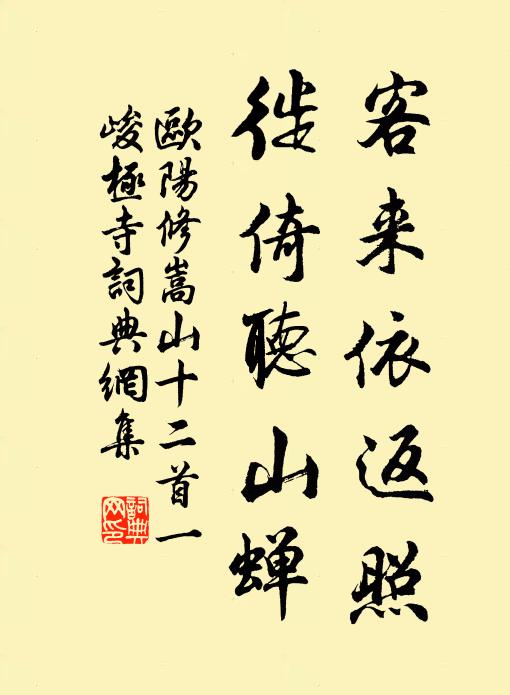 客来依返照
徙倚聽山蝉
歐陽修嵩山十二首一
峻極寺詞典網集
詞典
网印